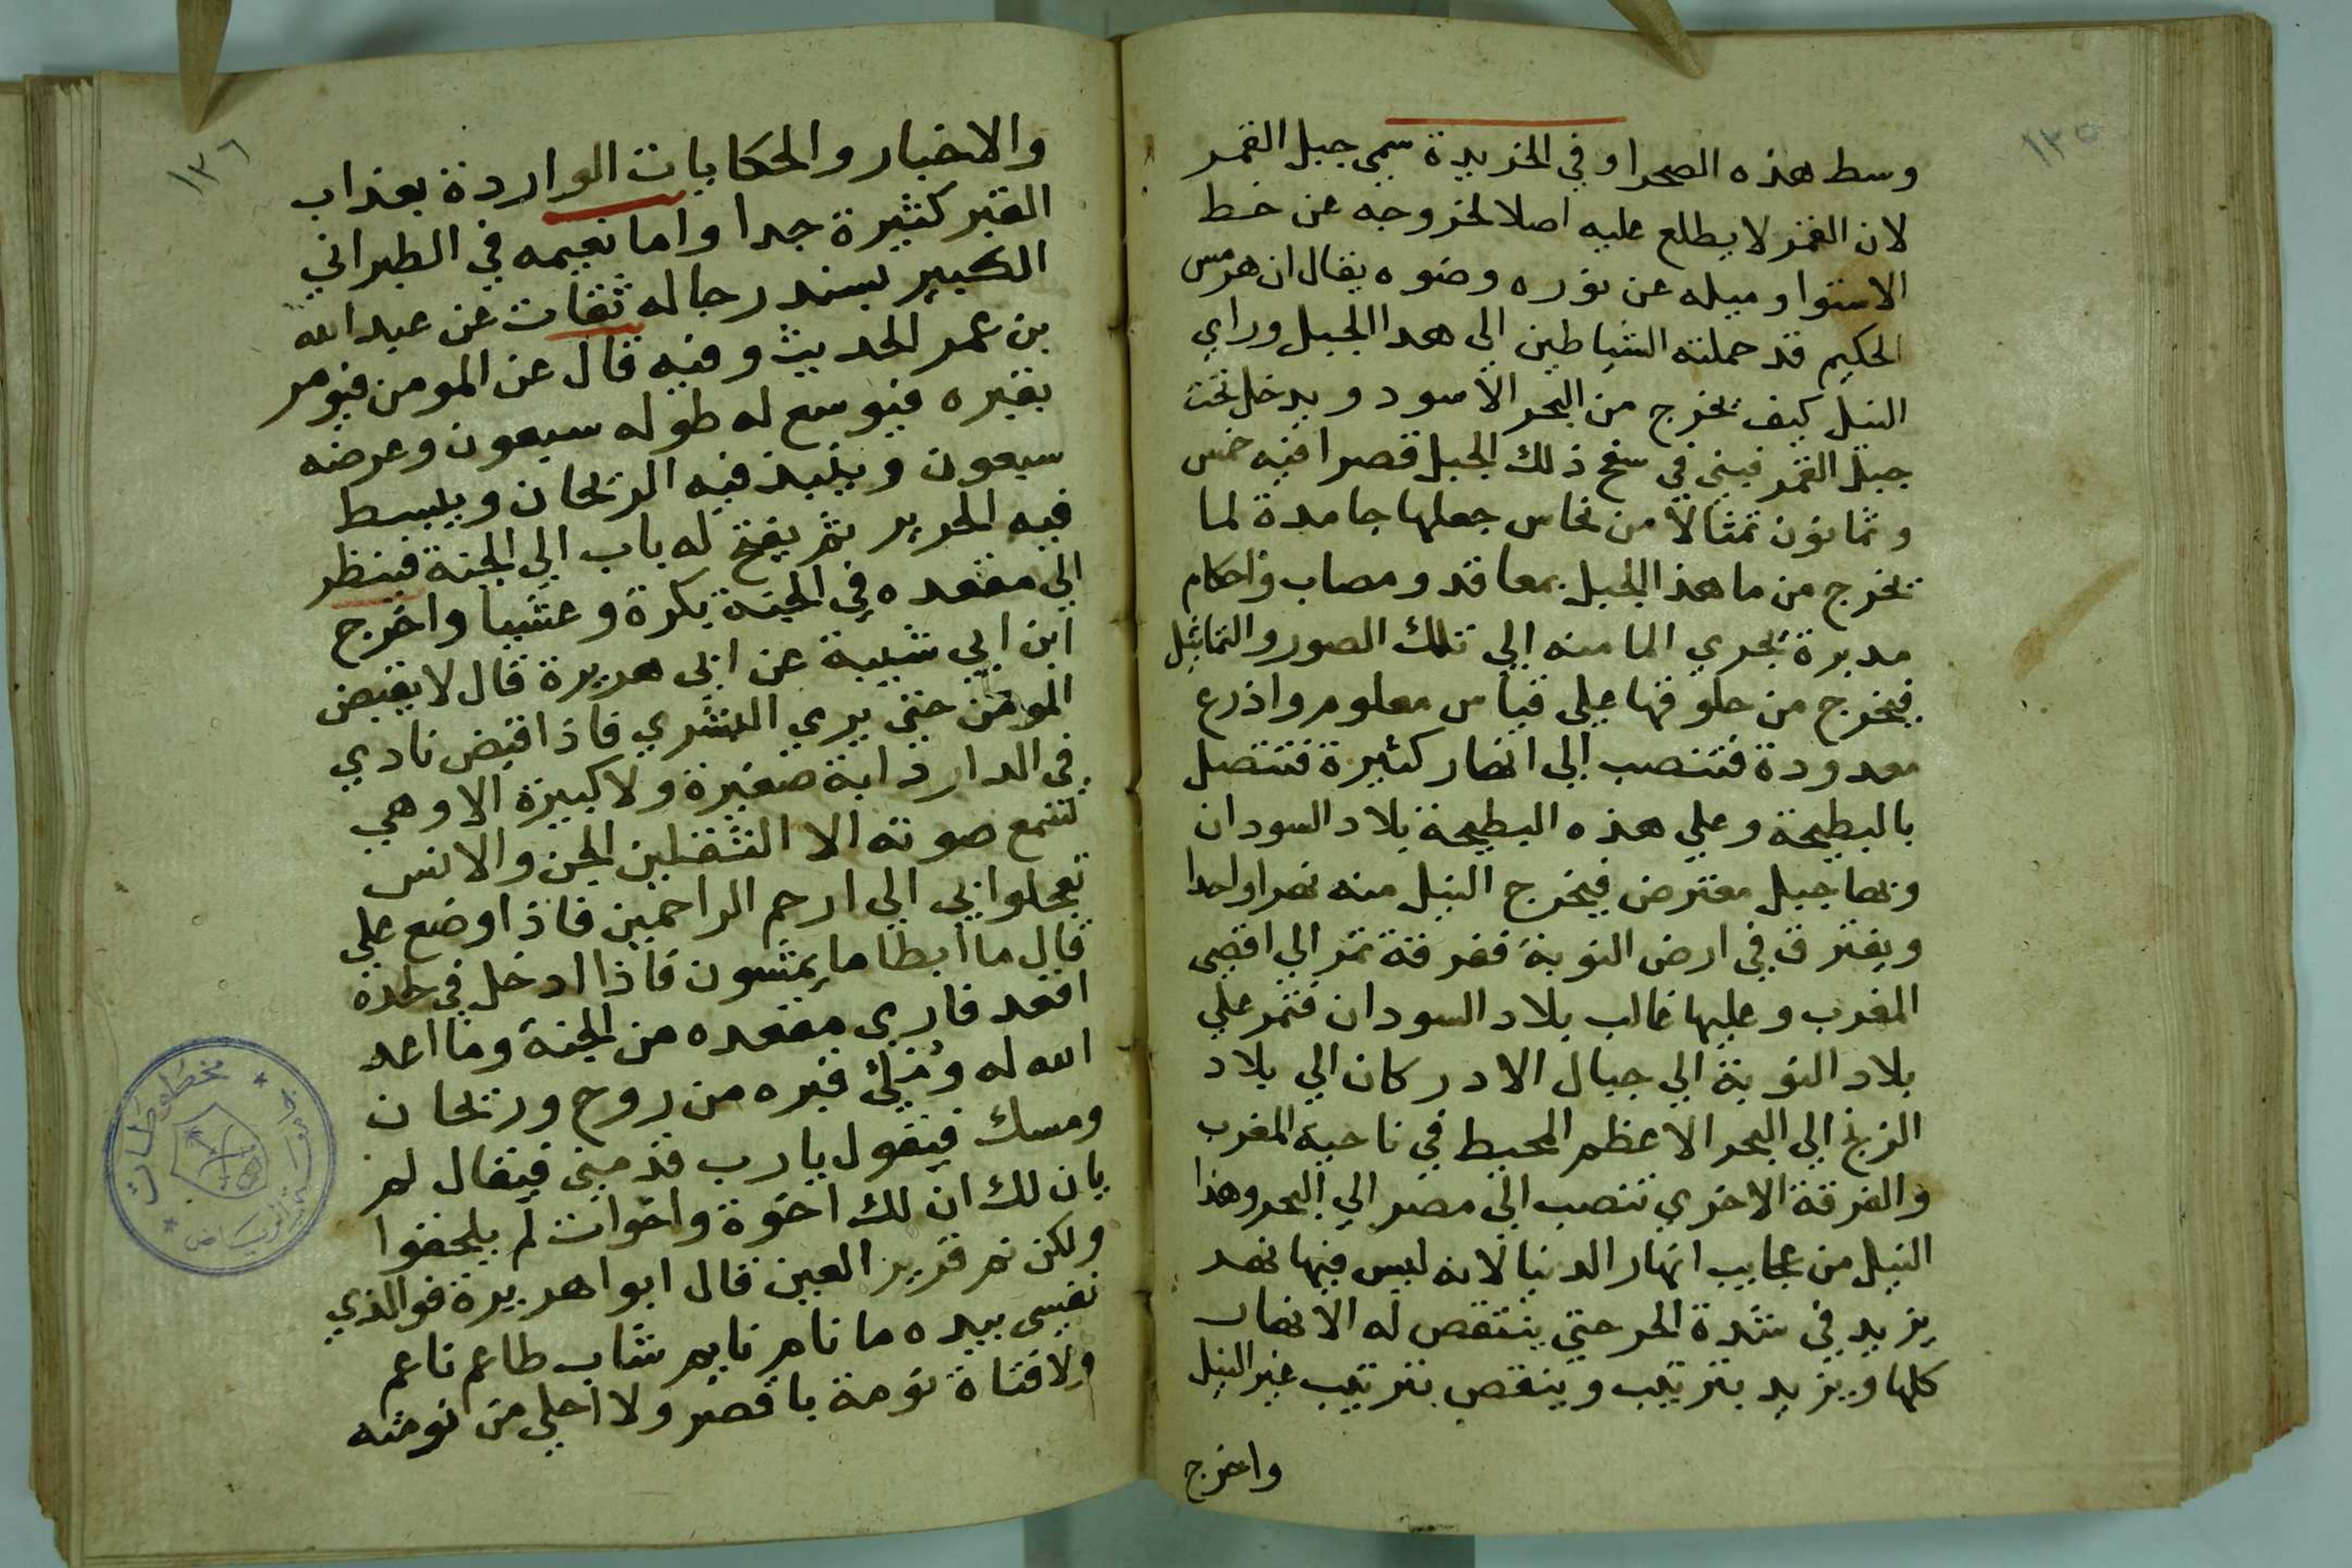 ١٣٥
وسط هذه الصحرا وفي الخريدة سمي جبل القمر
لان القمر لا يطلع عليه اصلا لخروجه عن خط
الاستوا وميله عن نوره وضوه يقال ان هرمس
الحكيم قد حملته الشياطين الي هدا الجبل وراي
النيل كيف يخرج من البحر الاسود ويدخل تحت
جبل القمر فبني في سفح ذلك الجبل قصرا فيه خمس
وثمانون تمثالا من نحاس جعلها جامدة لما
يخرج من ما هذا الجبل بمعاقد ومصاب واحكام
مدبرة يجري الما منه الي تلك الصور والتماثيل
فيخرج من حلوقها علي قياس معلوم واذرع
معدودة فتنصب الي انهار كثيرة فتتصل
بالبطيحة وعلي هذه البطيحة بلاد السودان
وبها جبل معترض فيخرج النيل منه نهرا واحدا
ويفترق في ارض النوبة ففرقة تمر الي اقصي
المغرب وعليها غالب بلاد السودان فتمر علي
بلاد النوبة الي جبال الادركان الي بلاد
الزنج الي البحر الاعظم المحيط في ناحية المغرب
والفرقة الاخري تنصب الي مصر الي البحر وهذا
النيل من عجايب انهار الدنيا لانه ليس فيها نهر
يزيد في شدة الحر حتي ينتقص له الانهار
كلها ويزيد بترتيب وينقص بترتيب غير النيل
واخرج
١٣٦
والاخبار والحكايات الواردة بعذاب
القبر كثيرة جدا واما نعيمه في الطبراني
الكبير بسند رجاله ثقات عن عبد الله
بن عمر الحديث وفيه قال عن المومن فيومر
بقبره فيوسع له طوله سبعون وعرضه
سبعون وينبذ فيه الريحان ويبسط
فيه الحرير ثم يفتح له باب الي الجنة فينظر
الي مقعده في الجنة بكرة وعشيا واخرج
ابن ابي شيبة عن ابي هريرة قال لا يقبض
المومن حتي يري البشري فاذا قبض نادي
في الدار دابة صغيرة ولا كبيرة الا وهي
تسمع صوته الا الثقلين الجن والانس
تعجلوا بي الي ارحم الراحمين فاذا وضع علي
قال ما ابطا ما يمشون فاذا ادخل في لحده
اقعد فاري مقعده من الجنة وما اعد
الله له وملئ قبره من روح وريحان
ومسك فيقول يا رب قدمني فيقال لم
يان لك ان لك اخوة واخوات لم يلحقوا
ولكن نم قرير العين قال ابوا هريرة فوالذي
نفسي بيده ما نام نايم شاب طاعم ناعم
ولا فتاة نومة باقصر ولا احلي من نومته
مخطوطات